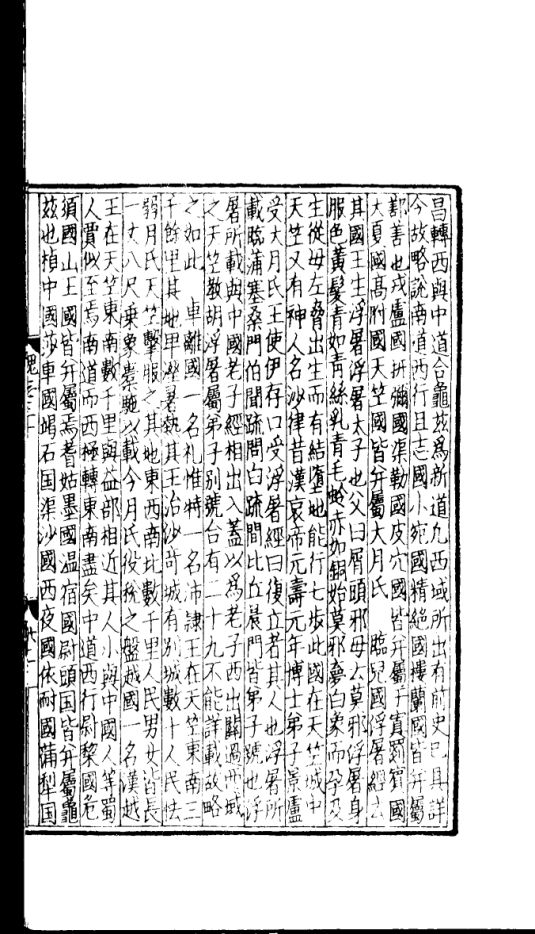 昌轉西與中道合龜兹爲新道凡西域所出有前史已具詳
今故略說南道西行且志國小宛國精絕國樓蘭國皆并屬
鄯善也戎盧國扞彌國渠勒國皮穴國皆并屬于窴罽賔國
大夏國高附國天竺國皆并屬大月氏　臨兒國浮暑經云
其國王生浮暑浮暑太子也父曰屑頭邪母云莫邪浮暑身
服色黄髮青如青絲乳青毛蛉赤如銅始莫邪夢白象而孕及
生從母左脅出生而有結墮地能行七步此國在天竺城中
天竺又有神人名沙律昔漢哀帝元壽元年博士弟子景盧
受大月氏王使伊存口受浮暑經曰復立者其人也浮暑所
載臨蒲塞桑門伯聞疏問白疏間比丘晨門皆弟子號也浮
暑所載與中國老子經相出入蓋以爲老子西出關過西域
之天竺教胡浮暑屬弟子別號合有二十九不能詳載故略
之如此　車離國一名礼惟特一名沛隸王在天竺東南三
千餘里其地卑溼暑熱其王治沙竒城有別城數十人民怯
弱月氏天竺擊服之其地東西南北數千里人民男女皆長
一丈八尺乗象橐駞以載今月氏役稅之盤越國一名漢越
王在天竺東南數千里與益部相近其人小與中國人等蜀
人賈似至焉南道而西極轉東南盡矣中道西行尉犂國危
須國山王國皆并屬焉耆姑墨國温宿國尉頭国皆并屬龜
兹也楨中國莎車國竭石国渠沙國西夜國依耐國蒲犁国